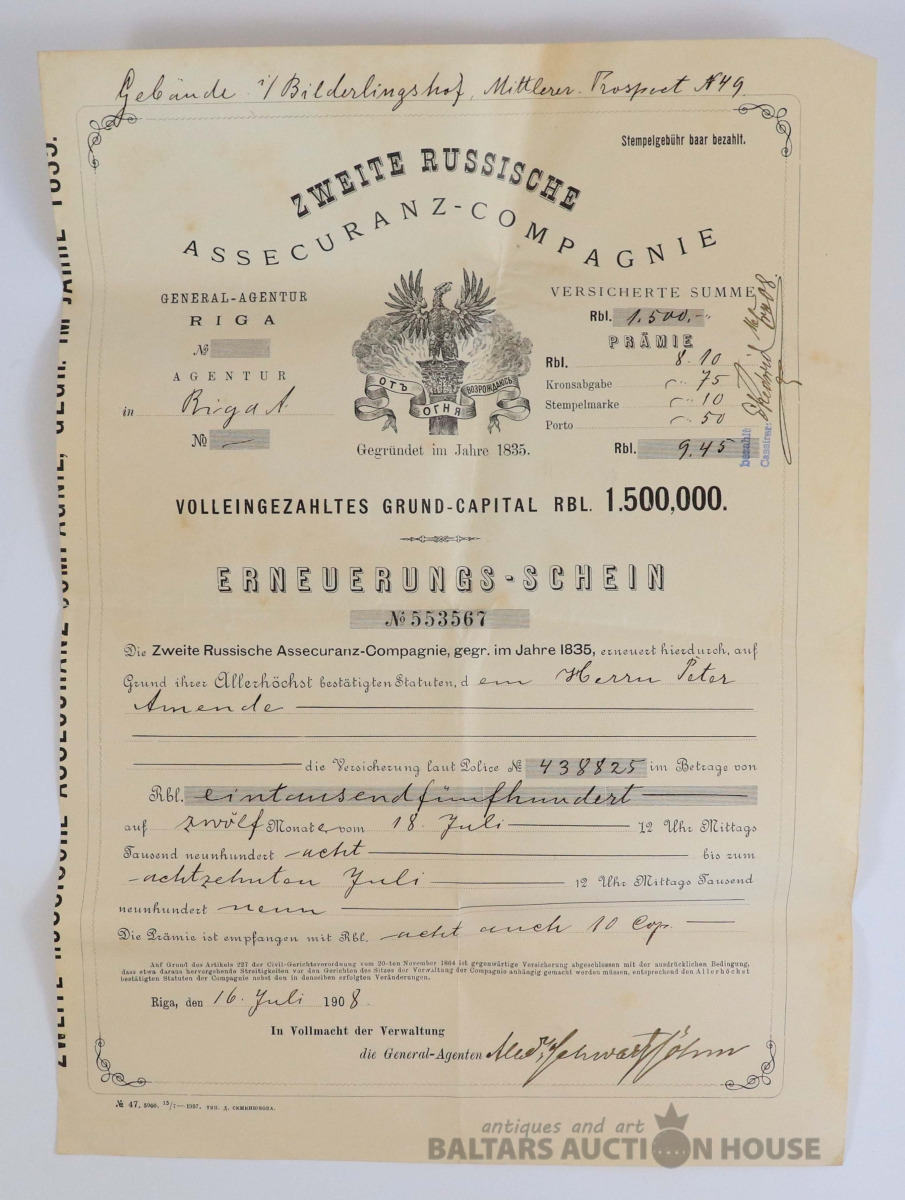 Gebäude i/ Bilderlingshof, Mittlerer Prospect N49
Stempelgebühr baar bezahlt.
ZWEITE RUSSISCHE
ASSECURANZ-COMPAGNIE
GENERAL-AGENTUR
RIGA
№
AGENTUR
in Riga I
№ —
ОТЪ ОГНЯ ВОЗРОЖДАЮСЬ
Gegründet im Jahre 1835.
VERSICHERTE SUMME
Rbl. 1.500,-
PRÄMIE
Rbl. 8.10
Kronsabgabe 75
Stempelmarke 10
Porto 50
Rbl. 9.45
bezahlt
Cassirer:
VOLLEINGEZAHLTES GRUND-CAPITAL RBL. 1.500,000.
ERNEUERUNGS-SCHEIN
№ 553567
Die Zweite Russische Assecuranz-Compagnie, gegr. im Jahre 1835, erneuert hierdurch, auf
Grund ihrer Allerhöchst bestätigten Statuten, d em Herrn Peter
Amende
die Versicherung laut Police № 438825 im Betrage von
Rbl. eintausendfünfhundert
auf zwölf Monate vom 18. Juli 12 Uhr Mittags
Tausend neunhundert acht bis zum
achtzehnten Juli 12 Uhr Mittags Tausend
neunhundert neun
Die Prämie ist empfangen mit Rbl. acht auch 10 Cop.
Auf Grund des Artikels 227 der Civil-Gerichtsverordnung vom 20-ten November 1864 ist gegenwärtige Versicherung abgeschlossen mit der ausdrücklichen Bedingung,
dass etwa daraus hervorgehende Streitigkeiten vor den Gerichten des Sitzes der Verwaltung der Compagnie anhängig gemacht werden müssen, entsprechend den Allerhöchst
bestätigten Statuten der Compagnie nebst den in denselben erfolgten Veränderungen.
Riga, den 16. Juli 1908.
In Vollmacht der Verwaltung
die General-Agenten Alex. Schwartz Söhne
№ 47, 5960. 15/7—1907. ТИП. Д. СЕМЕНЮКОВА.
ZWEITE RUSSISCHE ASSECURANZ-COMPAGNIE, GEGR. IM JAHRE 1835.
antiques and art
BALTARS AUCTION HOUSE